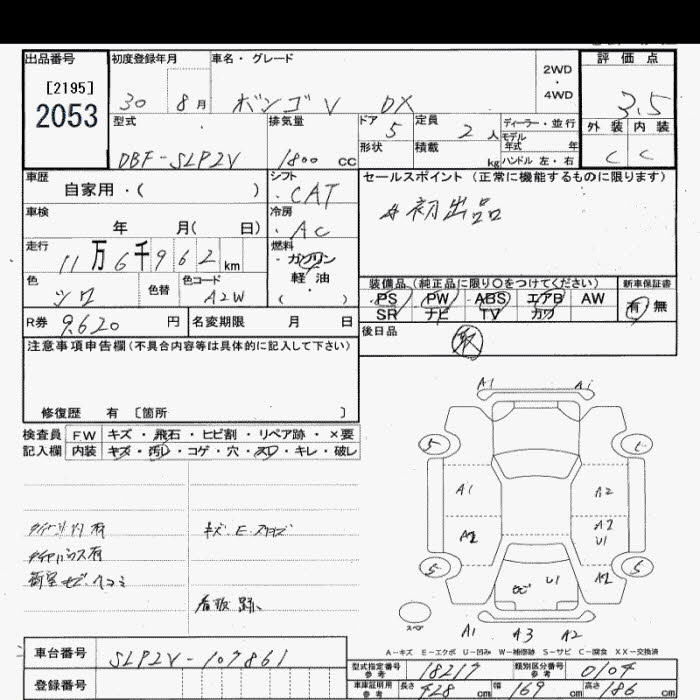 出品番号 初度登録年月 車名・グレード 評価点
[2195] 2WD
2053 ・
30 8月 ボンゴV DX 4WD 3.5
型式 排気量 ドア 5 定員 2人 ディーラー・並行 外装 内装
モデル年式 年
DBF-SLP2V 1800cc 形状 積載 kg ハンドル 左・右 C C
車歴 シフト セールスポイント(正常に機能するものに限ります)
自家用・( ) CAT
車検 冷房 #初出品
年 月( 日) AC
走行 燃料
11万6千962km ガソリン
色 色替 色コード 軽・油 装備品(純正品に限り○をつけてください) 新車保証書
A2W ( ) PS PW ABS エアB AW 有 無
R券 9,620円 名変期限 月 日 SR ナビ TV カワ
注意事項申告欄(不具合内容等は具体的に記入して下さい) 後日品 取
修復歴 有 [箇所 ]
検査員 FW キズ・飛石・ヒビ割・リペア跡・×要
記入欄 内装 キズ・汚レ・コゲ・穴・スレ・キレ・破レ
A1 A1
5
A1 A2
A2 A2
U1
5 5
U1 A2
スペア
看板跡
A1 A3 A2
A-キズ E-エクボ U-凹み W-補修跡 S-サビ C-腐食 XX-交換済
車台番号 SLP2V-107861
型式指定番号 参考 18217 類別区分番号 参考 0104
登録番号 車庫証明用 参考 長さ 428cm 幅 169cm 高さ 186cm